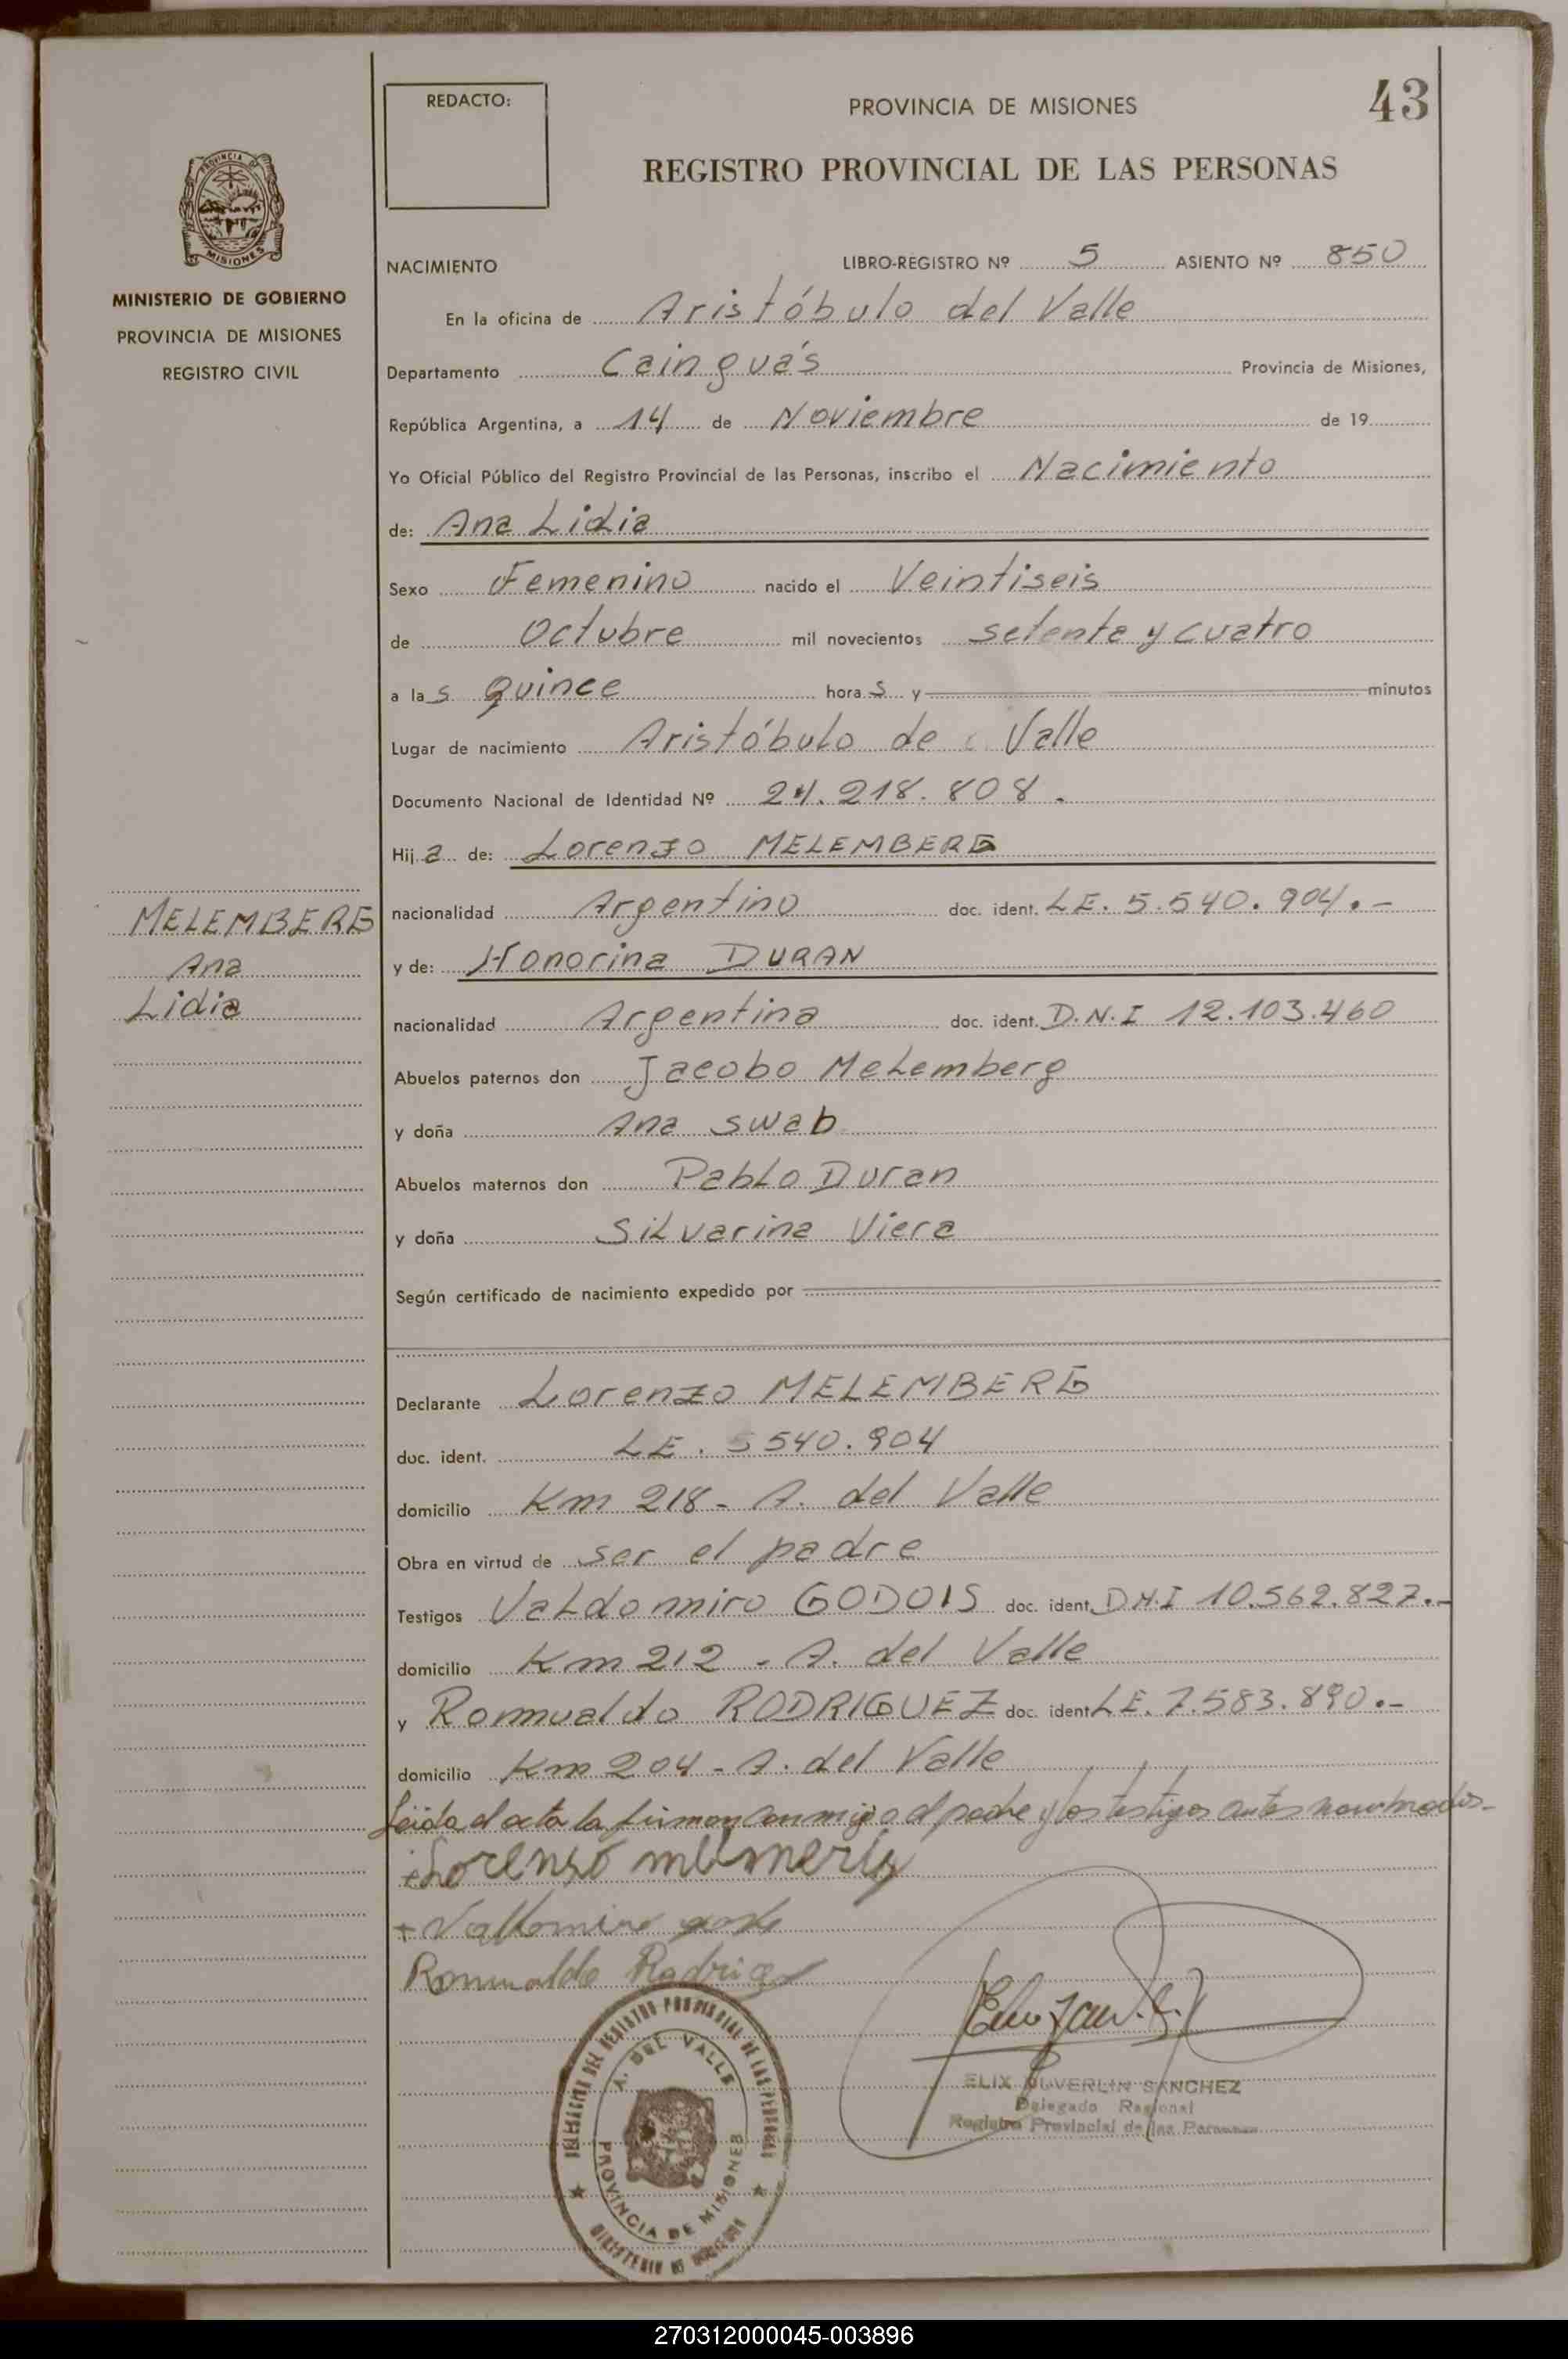 REDACTO:
PROVINCIA DE MISIONES
43
REGISTRO PROVINCIAL DE LAS PERSONAS
PROVINCIA DE
MISIONES
MINISTERIO DE GOBIERNO
PROVINCIA DE MISIONES
REGISTRO CIVIL
NACIMIENTO
LIBRO-REGISTRO Nº 5 ASIENTO Nº 850
En la oficina de Aristóbulo del Valle
Departamento Cainguás Provincia de Misiones,
República Argentina, a 14 de Noviembre de 19
Yo Oficial Público del Registro Provincial de las Personas, inscribo el Nacimiento
de: Ana Lidia
Sexo Femenino nacido el Veintiseis
de Octubre mil novecientos setenta y cuatro
a las Quince horas y minutos
Lugar de nacimiento Aristóbulo de Valle
Documento Nacional de Identidad Nº 24.218.808.
Hija de: Lorenzo MELEMBERG
nacionalidad Argentino doc. ident. LE. 5.540.904.-
y de: Honorina DURAN
nacionalidad Argentina doc. ident. D.N.I 12.103.460
MELEMBERG
Ana
Lidia
Abuelos paternos don Jacobo Melemberg
y doña Ana Swab
Abuelos maternos don Pablo Duran
y doña Silvarina Viera
Según certificado de nacimiento expedido por
Declarante Lorenzo MELEMBERG
doc. ident. LE. 5540.904
domicilio Km 218 - A. del Valle
Obra en virtud de ser el padre
Testigos Valdomiro GODOIS doc. ident. D.N.I 10.562.827.-
domicilio Km 212 - A. del Valle
y Romualdo RODRIGUEZ doc. ident LE. 7.583.890.-
domicilio Km 204 - A. del Valle
Leida el acta la firman conmigo el padre y los testigos antes nombrados-
Lorenso
Romualdo
DEL REGISTRO PROVINCIAL DE LAS PERSONAS
A. DEL VALLE
PROVINCIA DE MISIONES
MINISTERIO DE GOBIERNO
ELIX SANCHEZ
Delegado Regional
Registro Provincial de las Personas
270312000045-003896